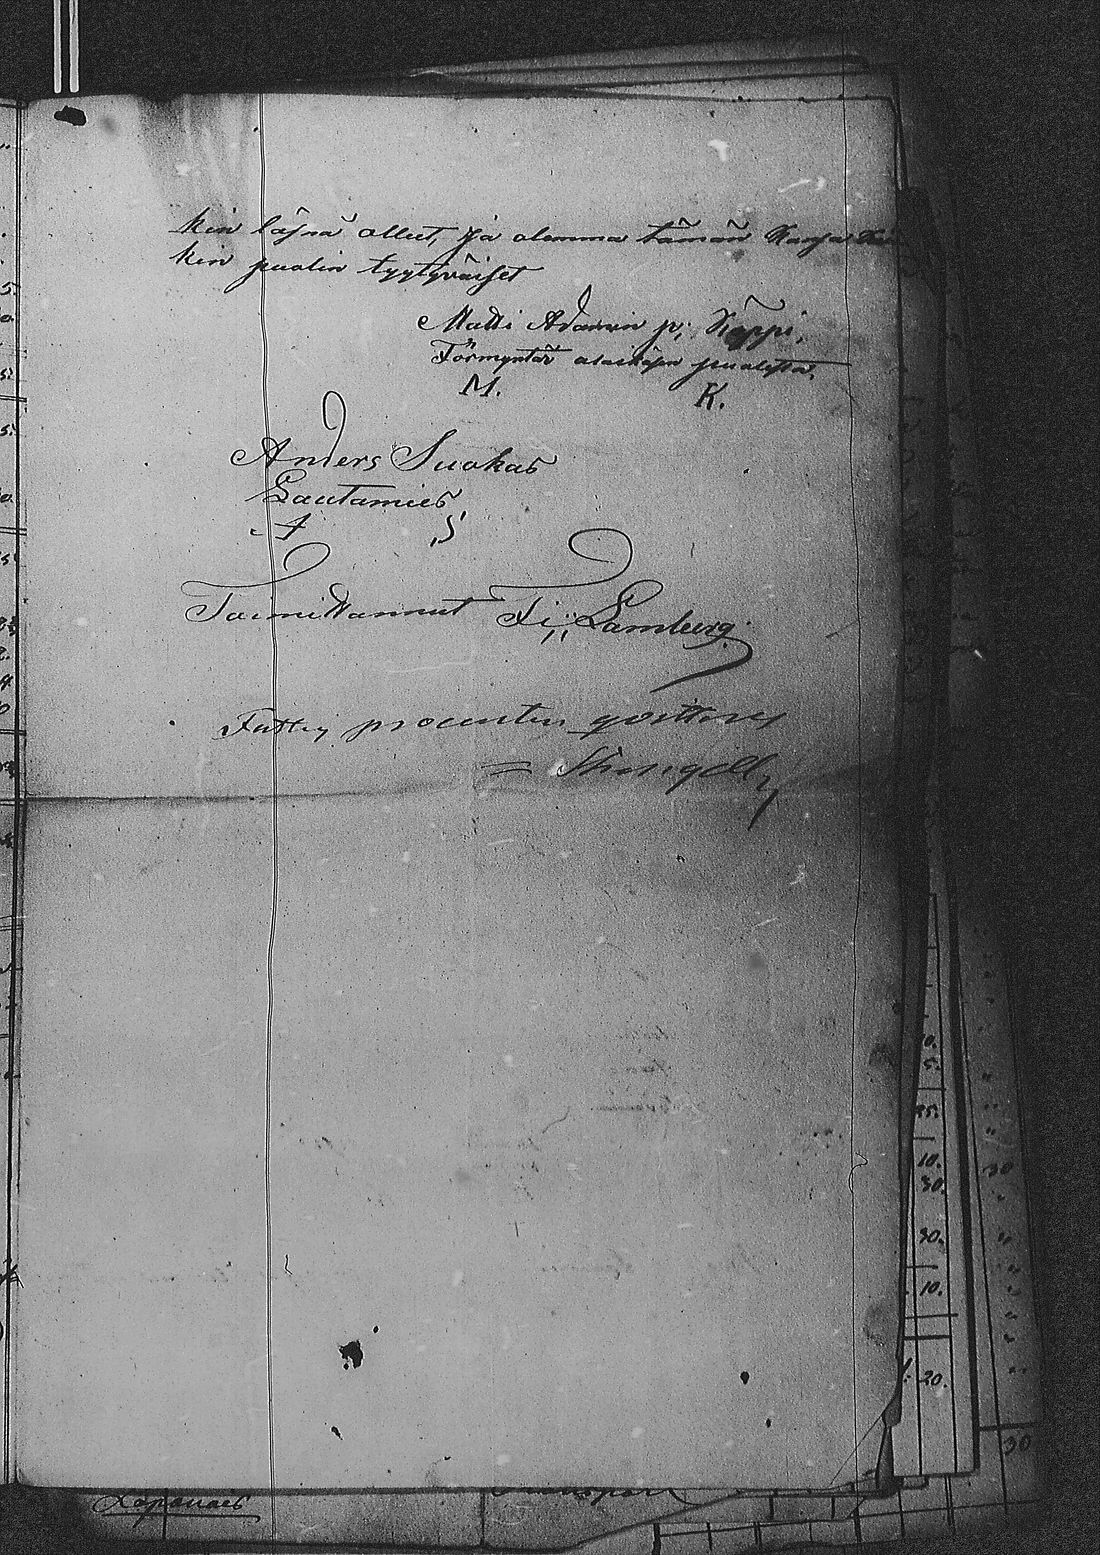 kin läsnä olleet, Ja olemma tämän Kanssa
kin puolin tyytyväiset
Matti Adamin p; Koppi,
Förmyntär alaikäsen puolesta.
M. K.
Anders Suokas
Lautamies
A S
Toimittannut Fj; Lamberg.
Fattig procenten qvitteras
30
10.
30.
30.
10.
20.
30